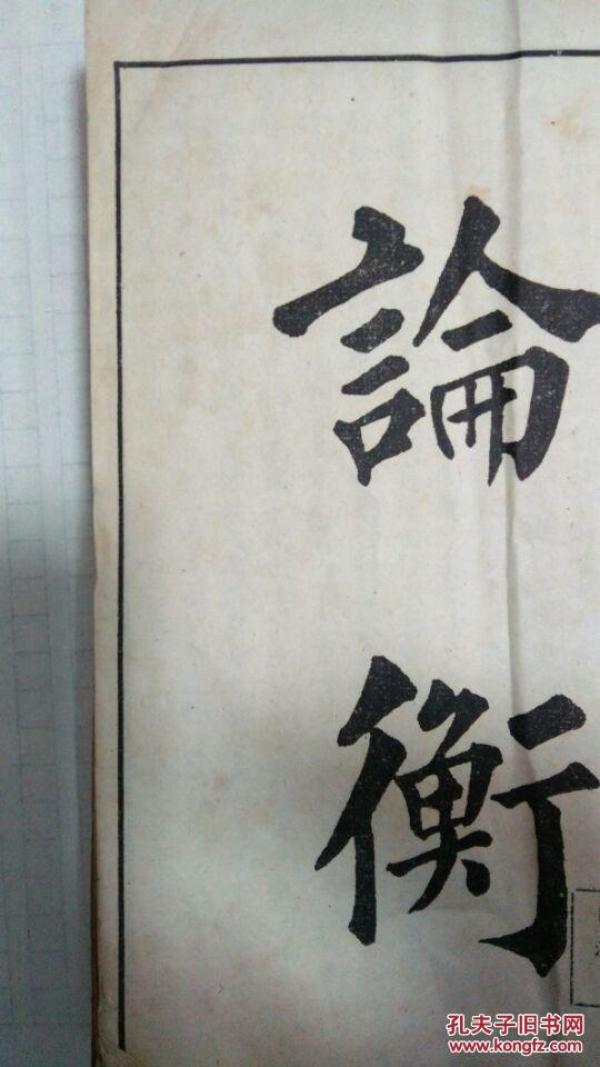 論
衡
孔夫子旧书网
www.kongfz.com